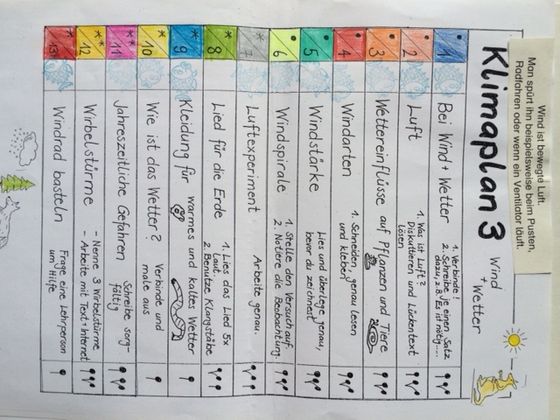 Wind ist bewegte Luft.
Man spürt ihn beispielsweise beim Pusten,
Radfahren oder wenn ein Ventilator läuft.
Klimaplan 3
Wind
+ Wetter
1 Bei Wind + Wetter
1. Verbinde!
2. Schreibe je einen Satz
dazu, z.B. Es ist nötig....
2 Luft
1. Was ist Luft?
Diskutieren und Lückentext
lösen
3 Wettereinflüsse auf Pflanzen und Tiere
4 Windarten
1. Schneiden, genau lesen
und kleben
5 Windstärke
Lies und überlege genau,
bevor du zeichnest
6 Windspirale
1. Stelle den Versuch auf.
2. Notiere die Beobachtung
7 Luftexperiment
Arbeite genau.
8 Lied für die Erde
1. Lies das Lied 5x
laut.
2. Benutze Klangstäbe
9 Kleidung für warmes und kaltes Wetter
10 Wie ist das Wetter?
Verbinde und
male aus
11 Jahreszeitliche Gefahren
Schreibe sorg-
fältig
12 Wirbelstürme
- Nenne 3 Wirbelstürme
- Arbeite mit Text + Internet
13 Windrad basteln
Frage eine Lehrperson
um Hilfe